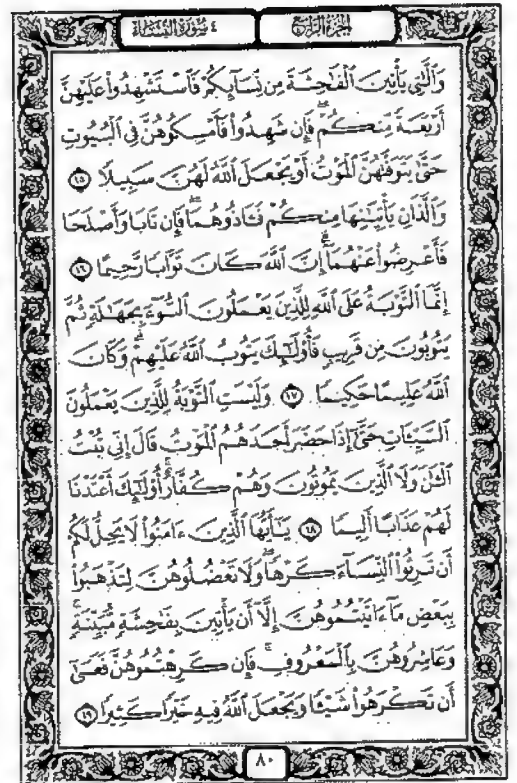 الجزء الرابع
٤ سورة النساء
وَالَّتِي يَأْتِينَ الْفَاحِشَةَ مِن نِّسَآئِكُمْ فَاسْتَشْهِدُوا عَلَيْهِنَّ
أَرْبَعَةً مِّنكُمْ فَإِن شَهِدُوا فَأَمْسِكُوهُنَّ فِي الْبُيُوتِ
حَتَّىٰ يَتَوَفَّىٰهُنَّ الْمَوْتُ أَوْ يَجْعَلَ اللَّهُ لَهُنَّ سَبِيلًا ١٥
وَالَّذَانِ يَأْتِيَٰنِهَا مِنكُمْ فَـَٔاذُوهُمَا فَإِن تَابَا وَأَصْلَحَا
فَأَعْرِضُوا عَنْهُمَآ إِنَّ اللَّهَ كَانَ تَوَّابًا رَّحِيمًا ١٦
إِنَّمَا التَّوْبَةُ عَلَى اللَّهِ لِلَّذِينَ يَعْمَلُونَ السُّوٓءَ بِجَهَٰلَةٍ ثُمَّ
يَتُوبُونَ مِن قَرِيبٍ فَأُولَٰٓئِكَ يَتُوبُ اللَّهُ عَلَيْهِمْ وَكَانَ
اللَّهُ عَلِيمًا حَكِيمًا ١٧ وَلَيْسَتِ التَّوْبَةُ لِلَّذِينَ يَعْمَلُونَ
السَّيِّـَٔاتِ حَتَّىٰٓ إِذَا حَضَرَ أَحَدَهُمُ الْمَوْتُ قَالَ إِنِّي تُبْتُ
الْـَٰٔنَ وَلَا الَّذِينَ يَمُوتُونَ وَهُمْ كُفَّارٌ أُولَٰٓئِكَ أَعْتَدْنَا
لَهُمْ عَذَابًا أَلِيمًا ١٨ يَٰٓأَيُّهَا الَّذِينَ ءَامَنُوا لَا يَحِلُّ لَكُمْ
أَن تَرِثُوا النِّسَآءَ كَرْهًا وَلَا تَعْضُلُوهُنَّ لِتَذْهَبُوا
بِبَعْضِ مَآ ءَاتَيْتُمُوهُنَّ إِلَّآ أَن يَأْتِينَ بِفَٰحِشَةٍ مُّبَيِّنَةٍ
وَعَاشِرُوهُنَّ بِالْمَعْرُوفِ فَإِن كَرِهْتُمُوهُنَّ فَعَسَىٰٓ
أَن تَكْرَهُوا شَيْـًٔا وَيَجْعَلَ اللَّهُ فِيهِ خَيْرًا كَثِيرًا ١٩
٨٠